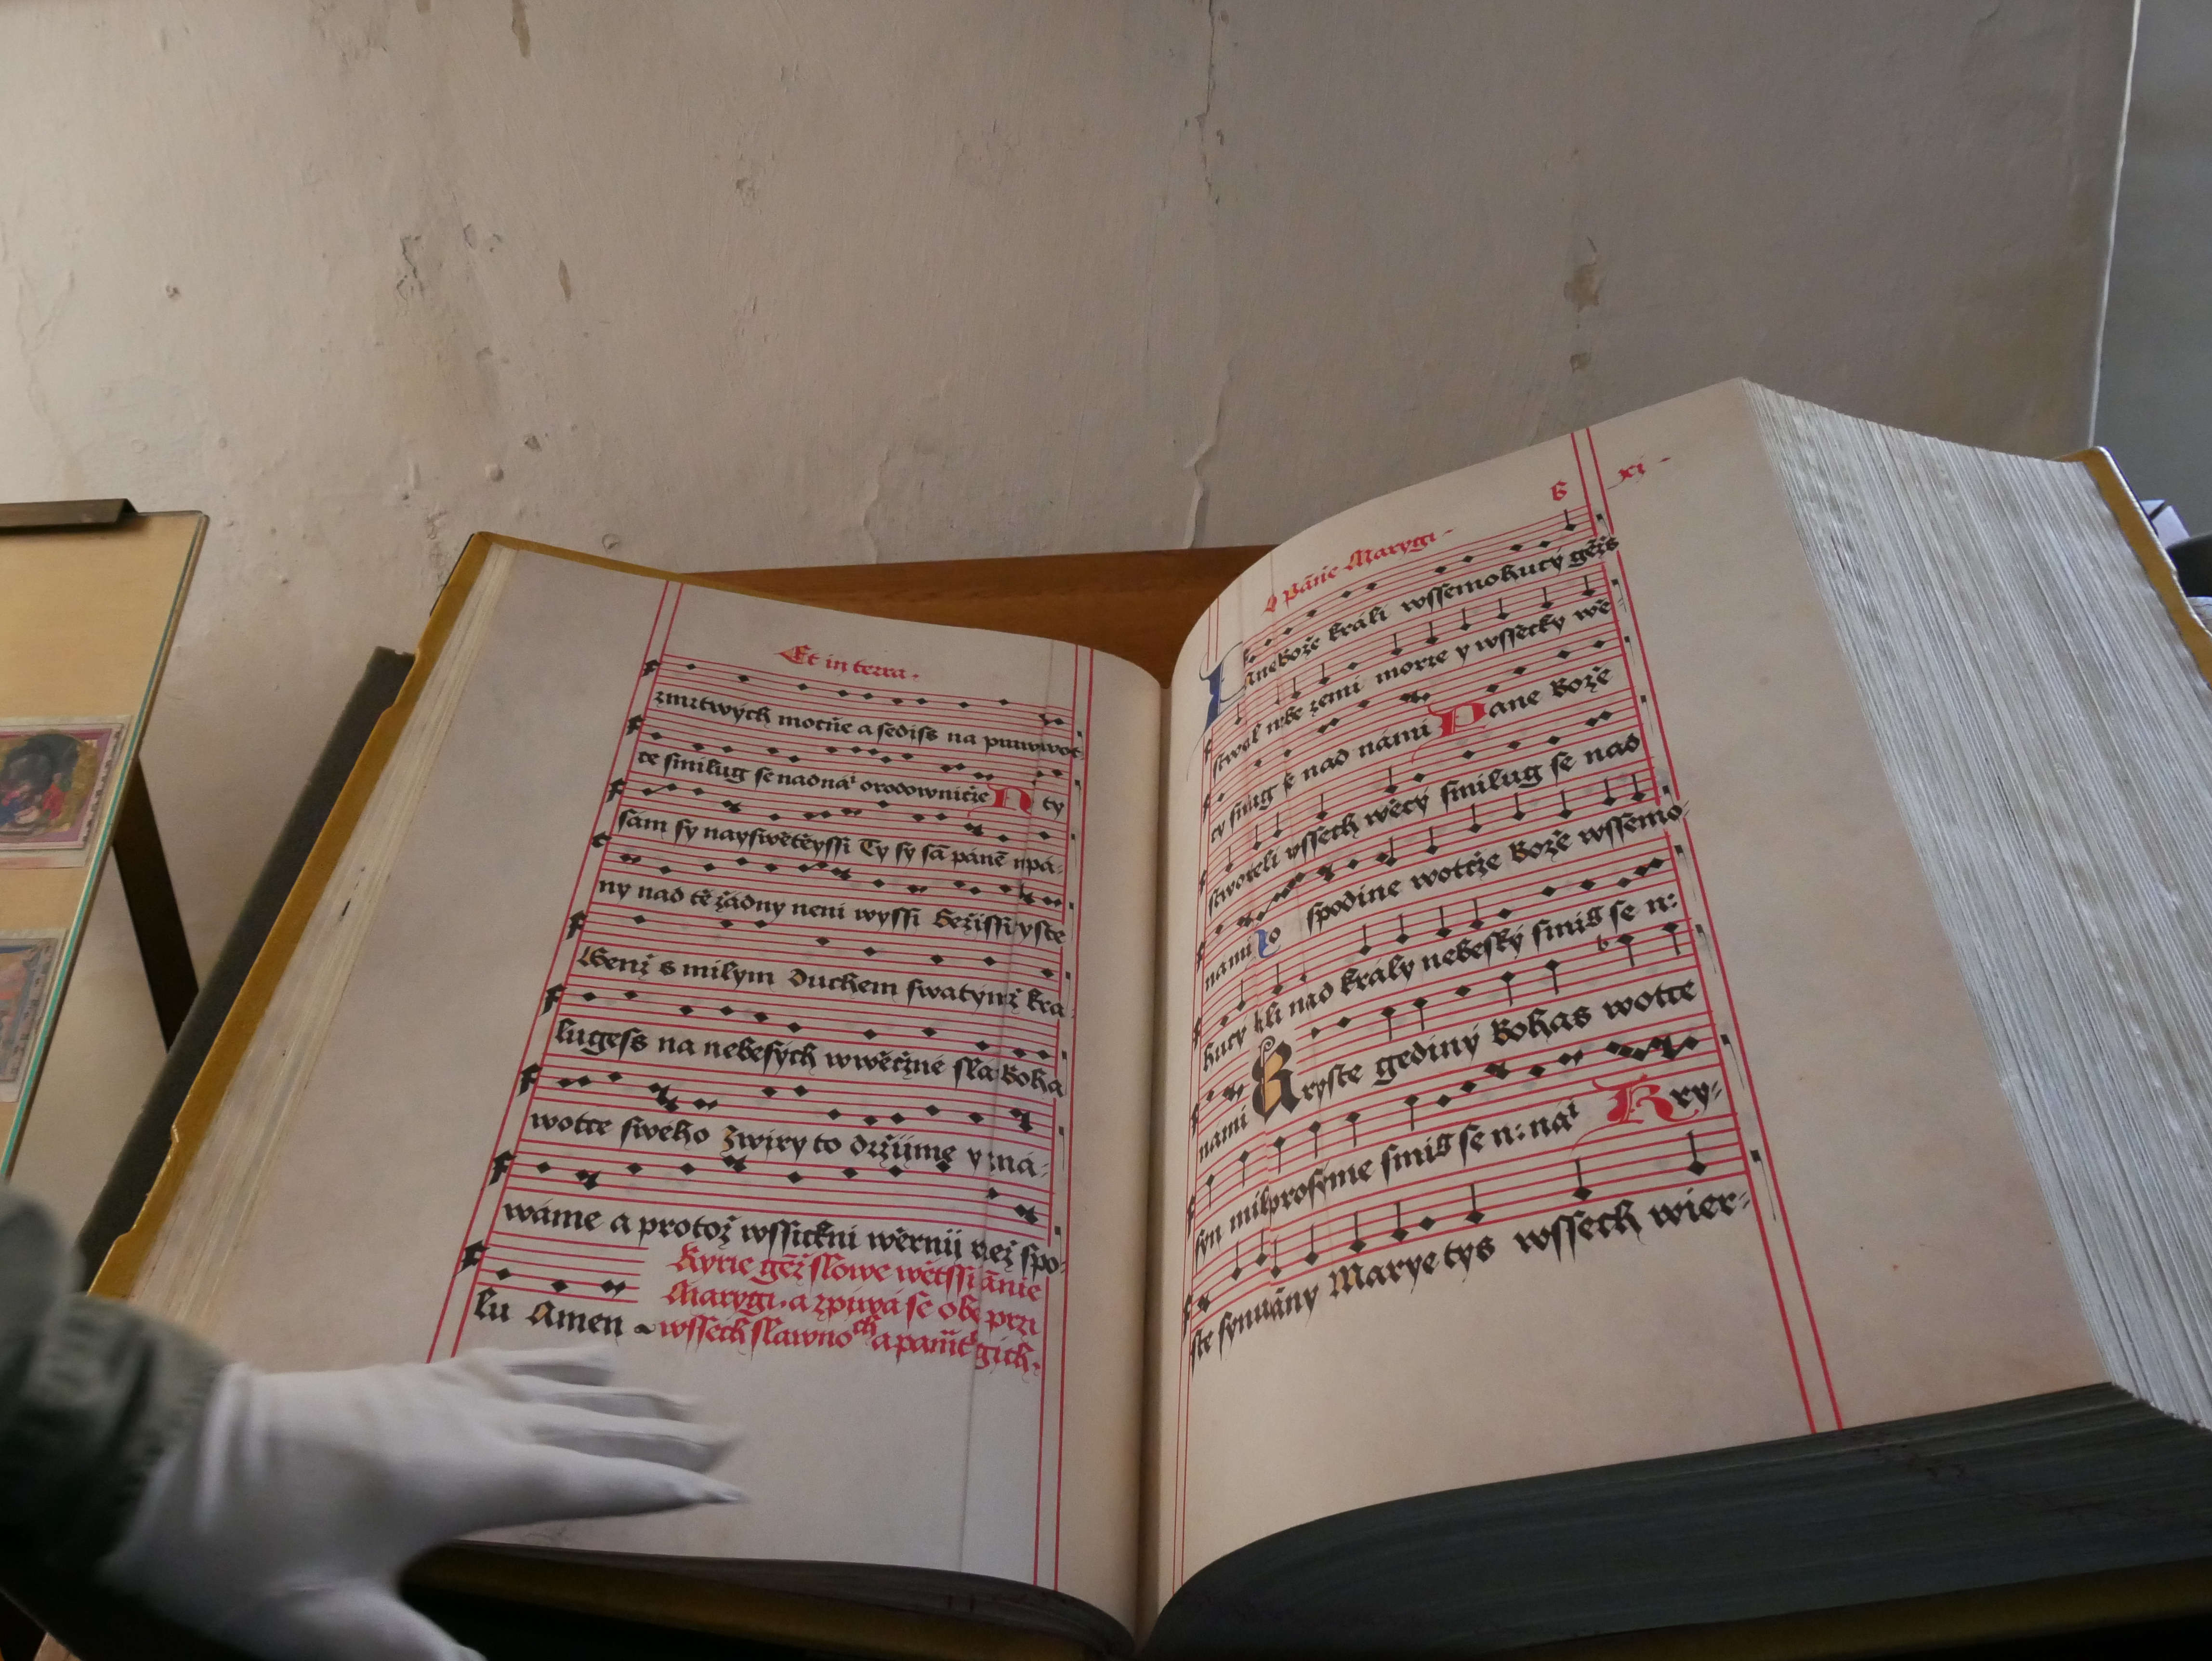 Et in terra.
zmrtwých mocňe a sediss na prawwot
ce smilug se nadnaı orodowničze N ty
sám sy nayswětěyssi Ty sy sā pánē npá-
ny nad tě žádny neni wyssi Gežissi yste
Genž s milym Duchem swatýmž kra
lugess na nebesých wwěčzné sla Boha
wotce sweho Zwiry to držijme y zná-
wáme a protož wssickni wěrnij než spo-
lu Amen
Kyrie gēž slowe wětssi ānie
Marygi. a zpiwá se obe przi
wssech slawnoch a pamt gich.
o Pánie Marygi
B xj
Pane Bože králi wssemohucý gēžs
stwořil nebe zemi morze y wssēcky wě
cý smilug se nad námi Pane Bože
stworeli wssech wěcý smilug se nad
námi Hospodine wotcže Bože wssěmo-
hucý králi nad králý nebeský smilg se n:
nami Kryste gediný Bohas wotce
syn milprosyme smilg se n: naı Kry-
ste synu pāny Marye tys wssech wier-